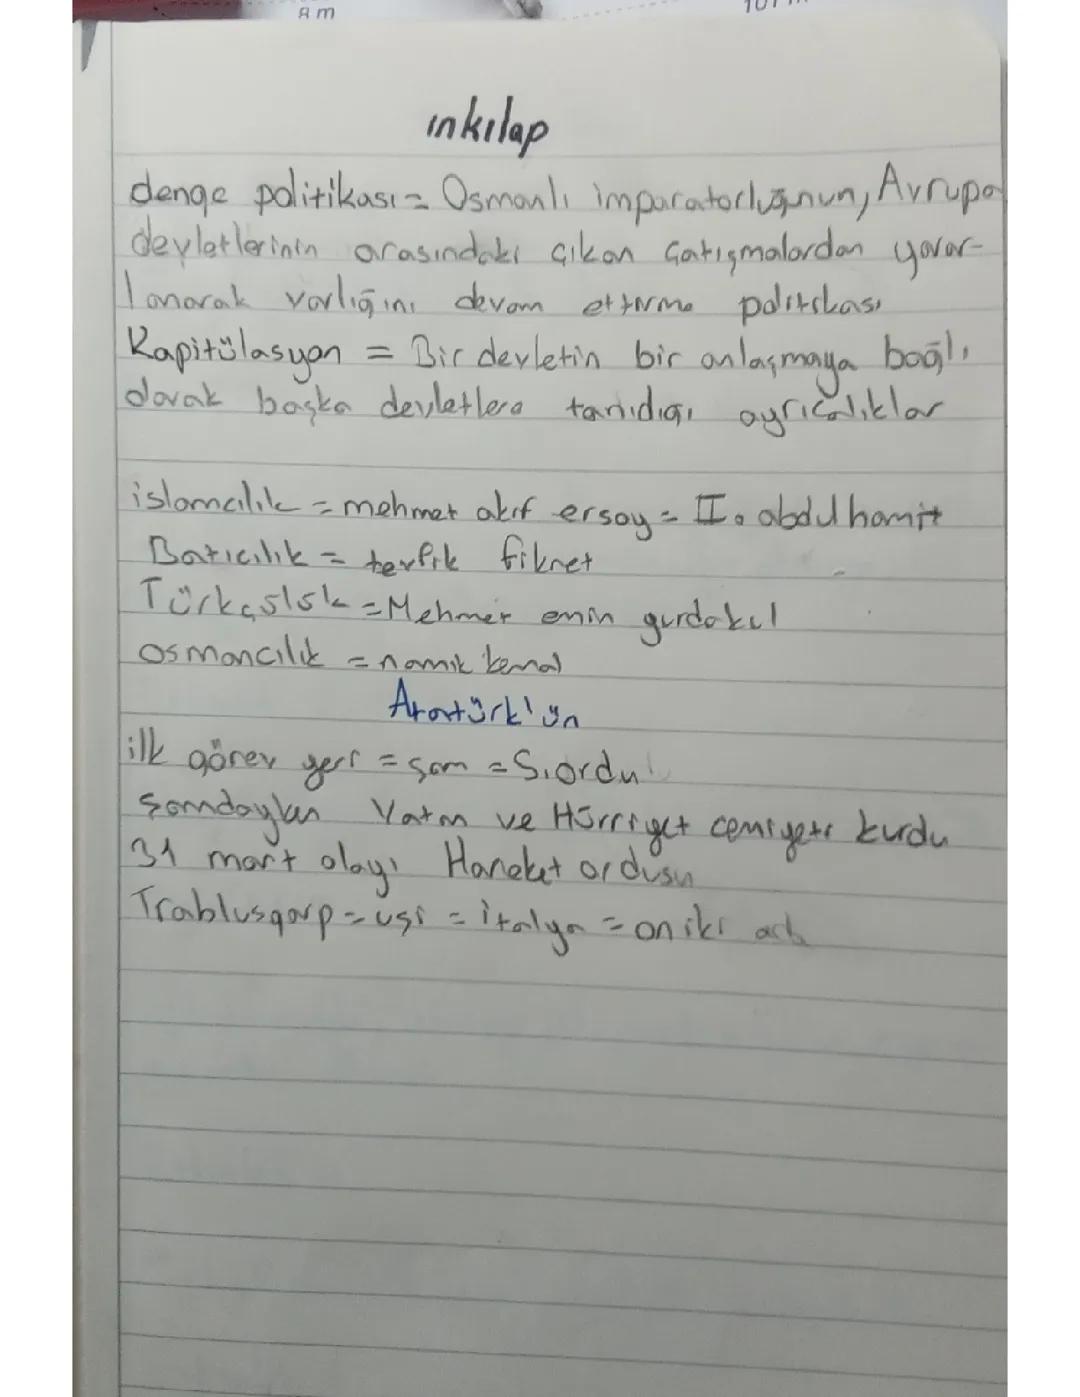 8 m
inkılap
denge politikası = Osmanlı imparatorluğunun, Avrupa
devletlerinin arasındaki çıkan çatışmalardan yarar-
lanarak varlığını devam ettirme politikası
Kapitülasyon = Bir devletin bir anlaşmaya bağlı
olarak başka devletlere tanıdığı ayrıcalıklar
islamcılık = mehmet akif ersoy = II. abdulhamit
Batıcılık = tevfik fikret
Türkçülük = Mehmet emin yurdakul
osmancılık = namık kemal
Atatürk'ün
ilk görev yeri = şam = 5. ordu
şamdayken Vatan ve Hürriyet cemiyeti kurdu
31 mart olayı Hareket ordusu
Trablusgarp = uşi = italya = on iki ada